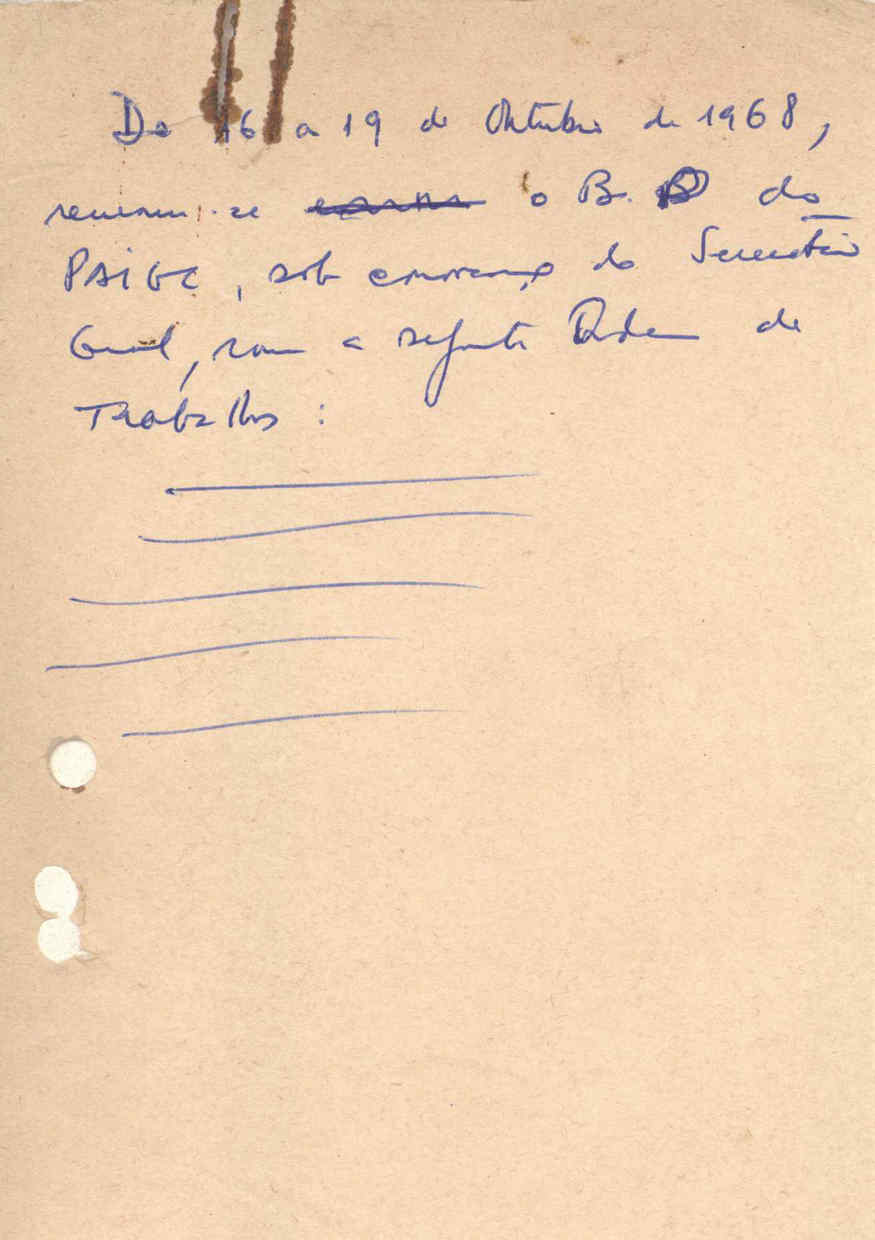 De 16 a 19 de Outubro de 1968,
reuniu-se o B. P. do
PAIGC, sob convocação do Secretário
Geral, com a seguinte Ordem de
Trabalhos: